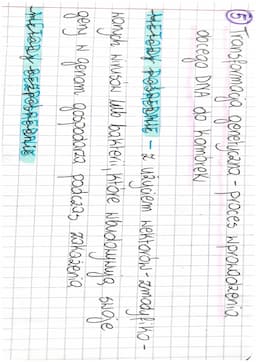 ⑤ Transformacja genetyczna - proces wprowadzenia
obcego DNA do komórek
-METODY POŚREDNIE - z użyciem wektorów - zmodyfiko-
wanych wirusów lub bakterii, które wbudowują swoje
geny w genom gospodarza podczas zakażenia
-METODY BEZPOŚREDNIE